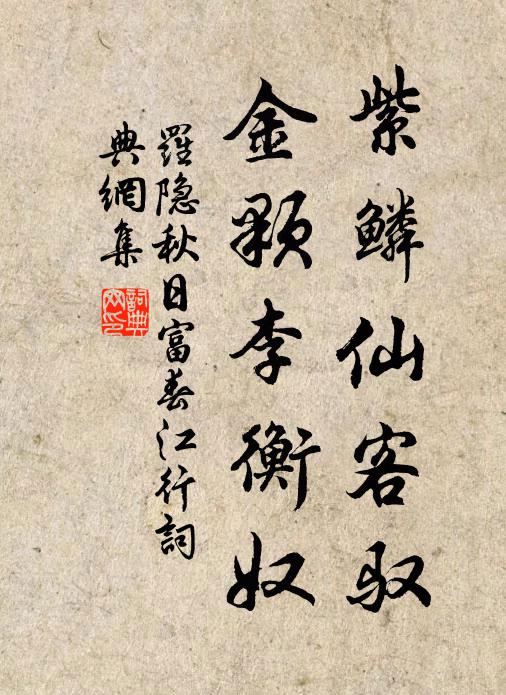 紫鳞仙客驭
金颗李衡奴
羅隐秋日富春江行詞
典網集
詞典
网印